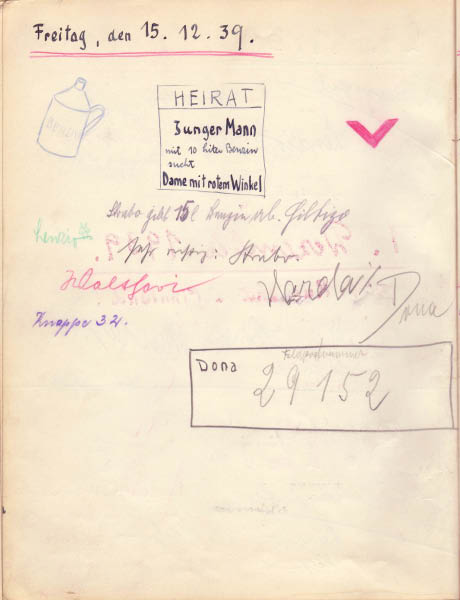 Freitag, den 15. 12. 39.
BENZIN
HEIRAT
Junger Mann
mit 10 Liter Benzin
sucht
Dame mit rotem Winkel
Strabo gibt 15 l Benzin ab.
Sehr richtig: Strabo
Knappe 32.
Dona
Dona
Feldpostnummer
29152